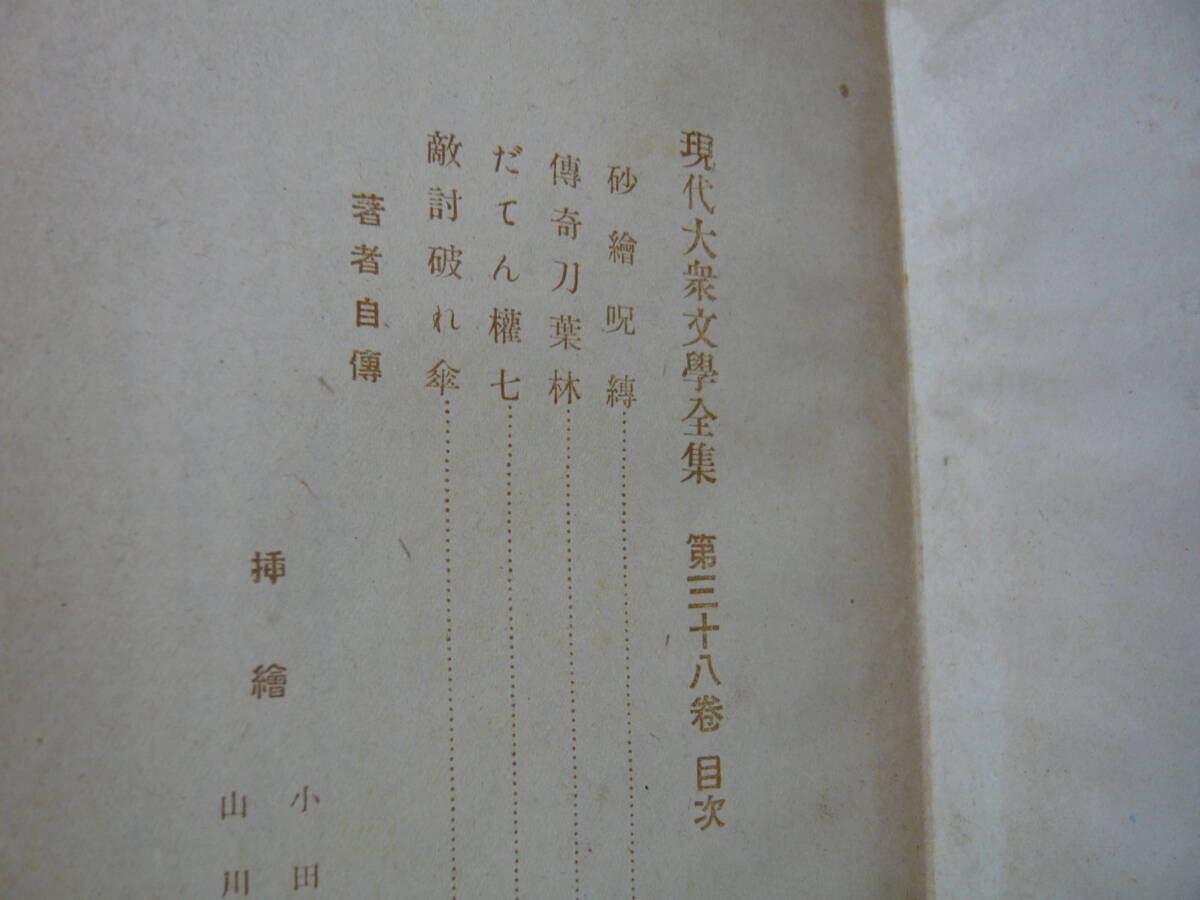 現代大衆文學全集 第三十八卷 目次
砂繪呪縛
傳奇刀葉林
だてん權七
敵討破れ傘
著者自傳
挿繪
小田
山川